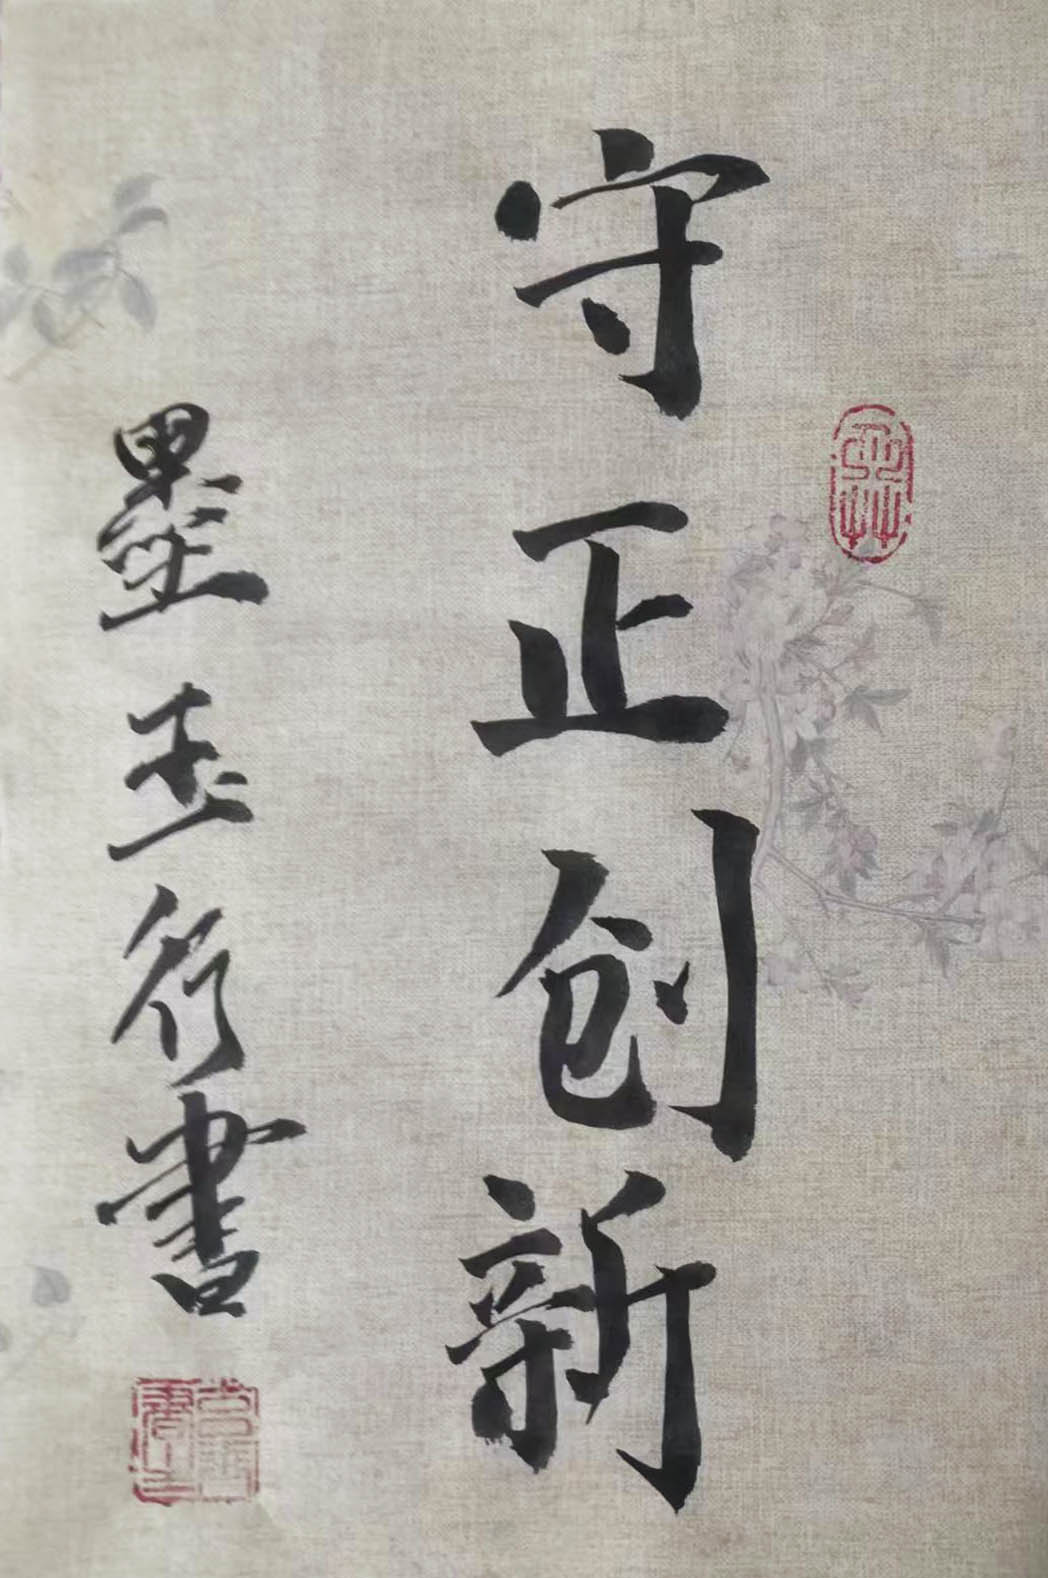 守正创新
墨玉行書